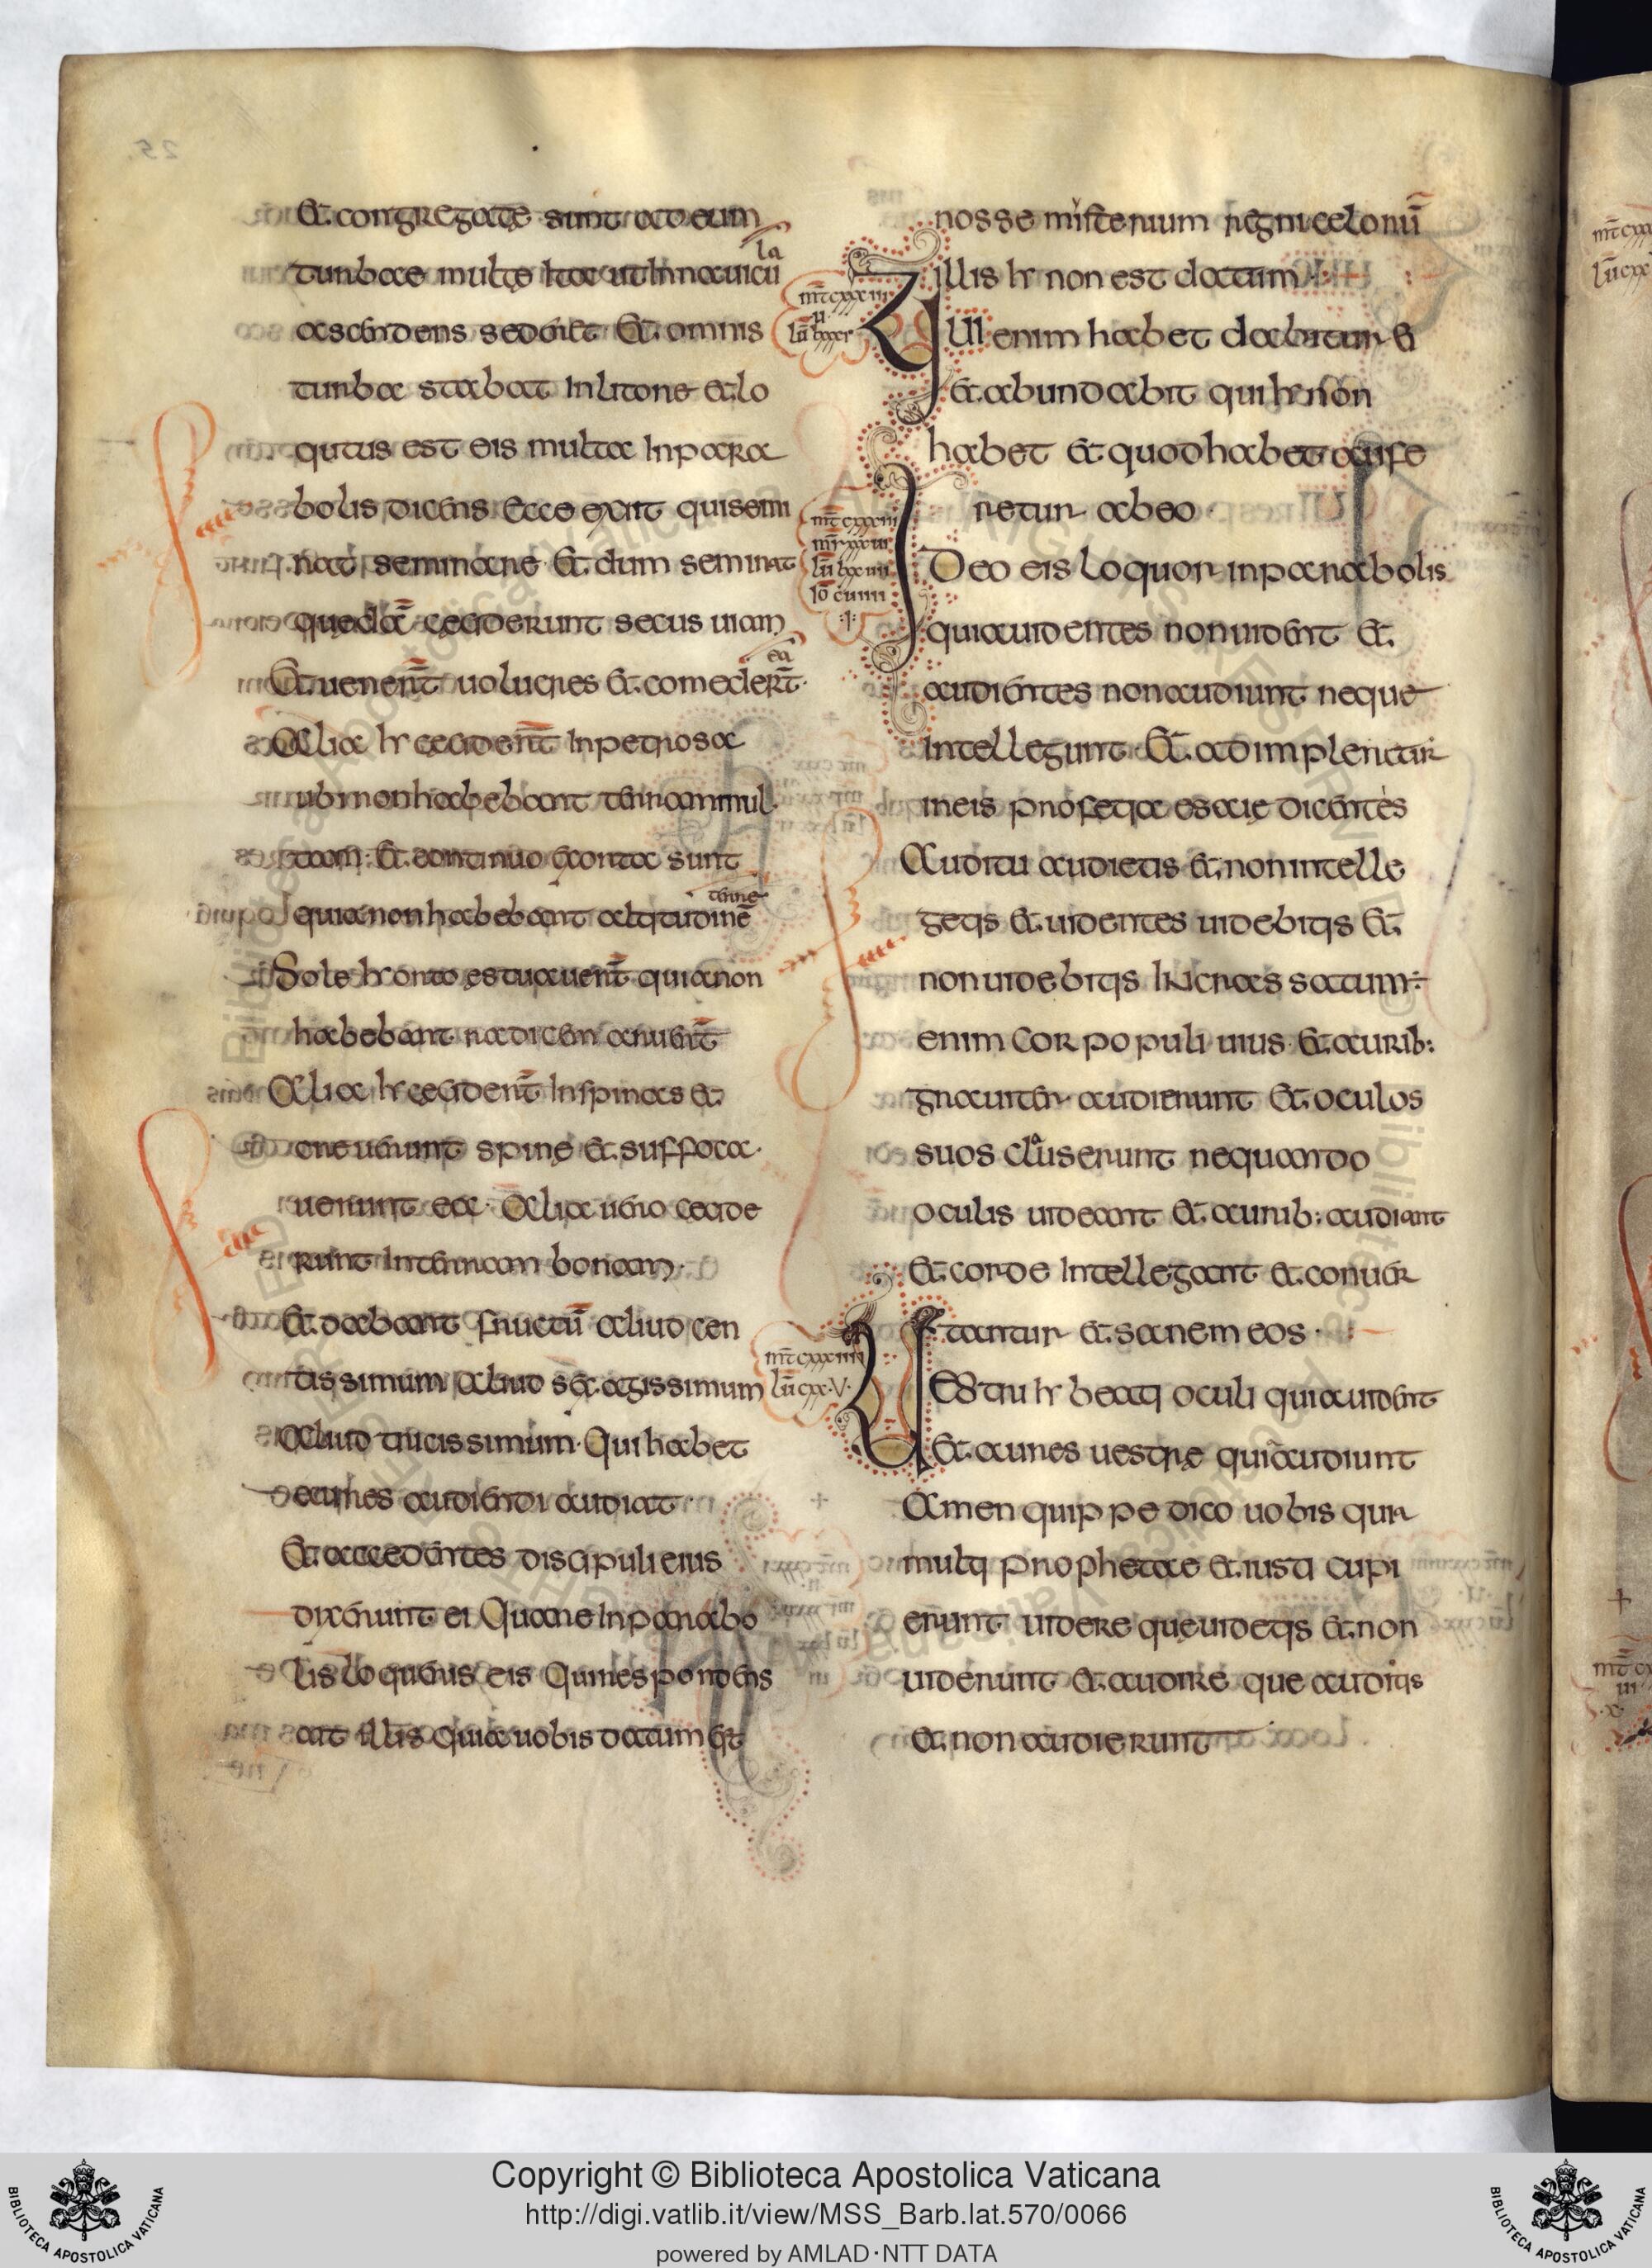 Et congregatę sunt ad eum
turbae multę ita ut in nauicu
la
ascendens sederet Et omnis
turba stabat in litore et lo
qutus est eis multa in para
bolis dicens ecce exiit qui semi
nat seminare Et dum seminat
quedā ceciderunt secus uiam
Et uener̄t uolucres et comeder̄t
ea
Alia ħ cecider̄t in petrosa
ubi non habebant terram mul
tam et continuo exorta sunt
quia non habebant altitudinē
terre
Sole ħ orto estuauer̄t quia non
habebant radicem aruer̄t
Alia ħ cecider̄t in spinas et
creuerunt spinę et suffoca
uerunt ea Alia uero cecide
runt in terram bonam
Et dabant fructū aliud cen
tissimum aliud sexagissimum
Aliud tricissimum Qui habet
aures audiendi audiat
Et accedentes discipuli eius
dixerunt ei Quare in parabo
lis loqueris eis Qui respondens
ait illis quia uobis datum est
nosse misterium regni celorū
illis ħ non est datum
mt̄ cxxxii
ii
lū lxxx
Qui enim habet dabitur ei
et abundabit qui ħ non
habet et quod habet aufe
retur ab eo
mt̄ cxxxiii
mr̄ xxxvii
lū lxxvii
io cviiii
i
Ideo eis loquor in parabolis
quia uidentes non uident et
audientes non audiunt neque
intellegunt Et adimpletur
in eis profetia esaię dicentes
Auditu audietis et non intelle
getis et uidentes uidebitis et
non uidebitis INcrassatum ÷
enim cor populi uius et aurib:
grauiter audierunt Et oculos
suos clauserunt nequando
oculis uideant et aurib: audiant
et corde intellegant et conuer
tantur et sanem eos
mt̄ cxxxiiii
lū cxx V
Uestri ħ beati oculi qui auident
et aures uestrę quia audiunt
Amen quippe dico uobis quia
multi prophetae et iusti cupi
erunt uidere que uidetis et non
uiderunt et audire que auditis
et non audierunt
Copyright © Biblioteca Apostolica Vaticana
http://digi.vatlib.it/view/MSS_Barb.lat.570/0066
powered by AMLAD·NTT DATA
BIBLIOTECA APOSTOLICA VATICANA
BIBLIOTECA APOSTOLICA VATICANA